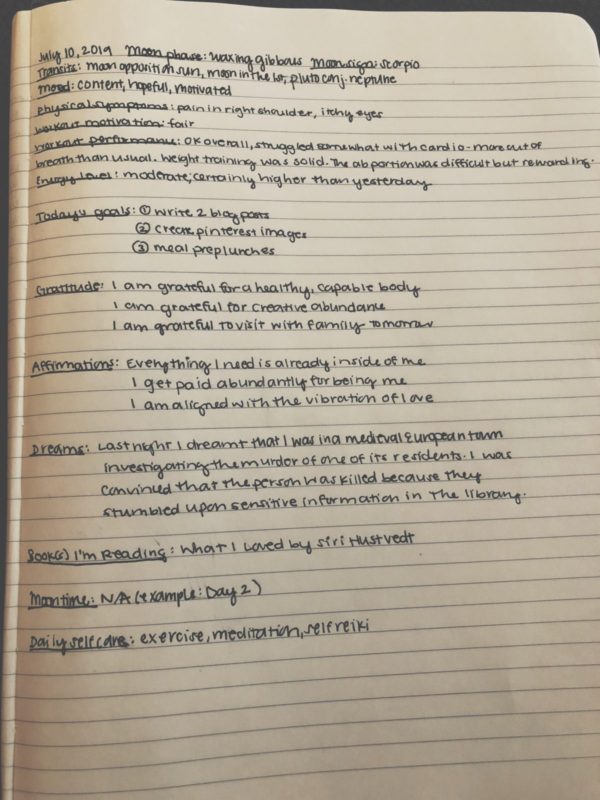 July 10, 2019 Moon phase: waxing gibbous Moon sign: scorpio
Transits: moon opposition sun, moon in the 1st, pluto conj. neptune
Mood: content, hopeful, motivated
Physical symptoms: pain in right shoulder, itchy eyes
Workout motivation: fair
Workout performance: OK overall, struggled somewhat with cardio - more out of
breath than usual. Weight training was solid. The ab portion was difficult but rewarding.
Energy level: moderate; certainly higher than yesterday
Today's goals: ① write 2 blog posts
② create pinterest images
③ meal prep lunches
Gratitude: I am grateful for a healthy, capable body
I am grateful for creative abundance
I am grateful to visit with family tomorrow
Affirmations: Everything I need is already inside of me
I get paid abundantly for being me
I am aligned with the vibration of love
Dreams: Last night I dreamt that I was in a medieval European town
investigating the murder of one of its residents. I was
convinced that the person was killed because they
stumbled upon sensitive information in the library.
Book(s) I'm Reading: What I Loved by Siri Hustvedt
Moontime: N/A (example: Day 2)
Daily selfcare: exercise, meditation, self reiki